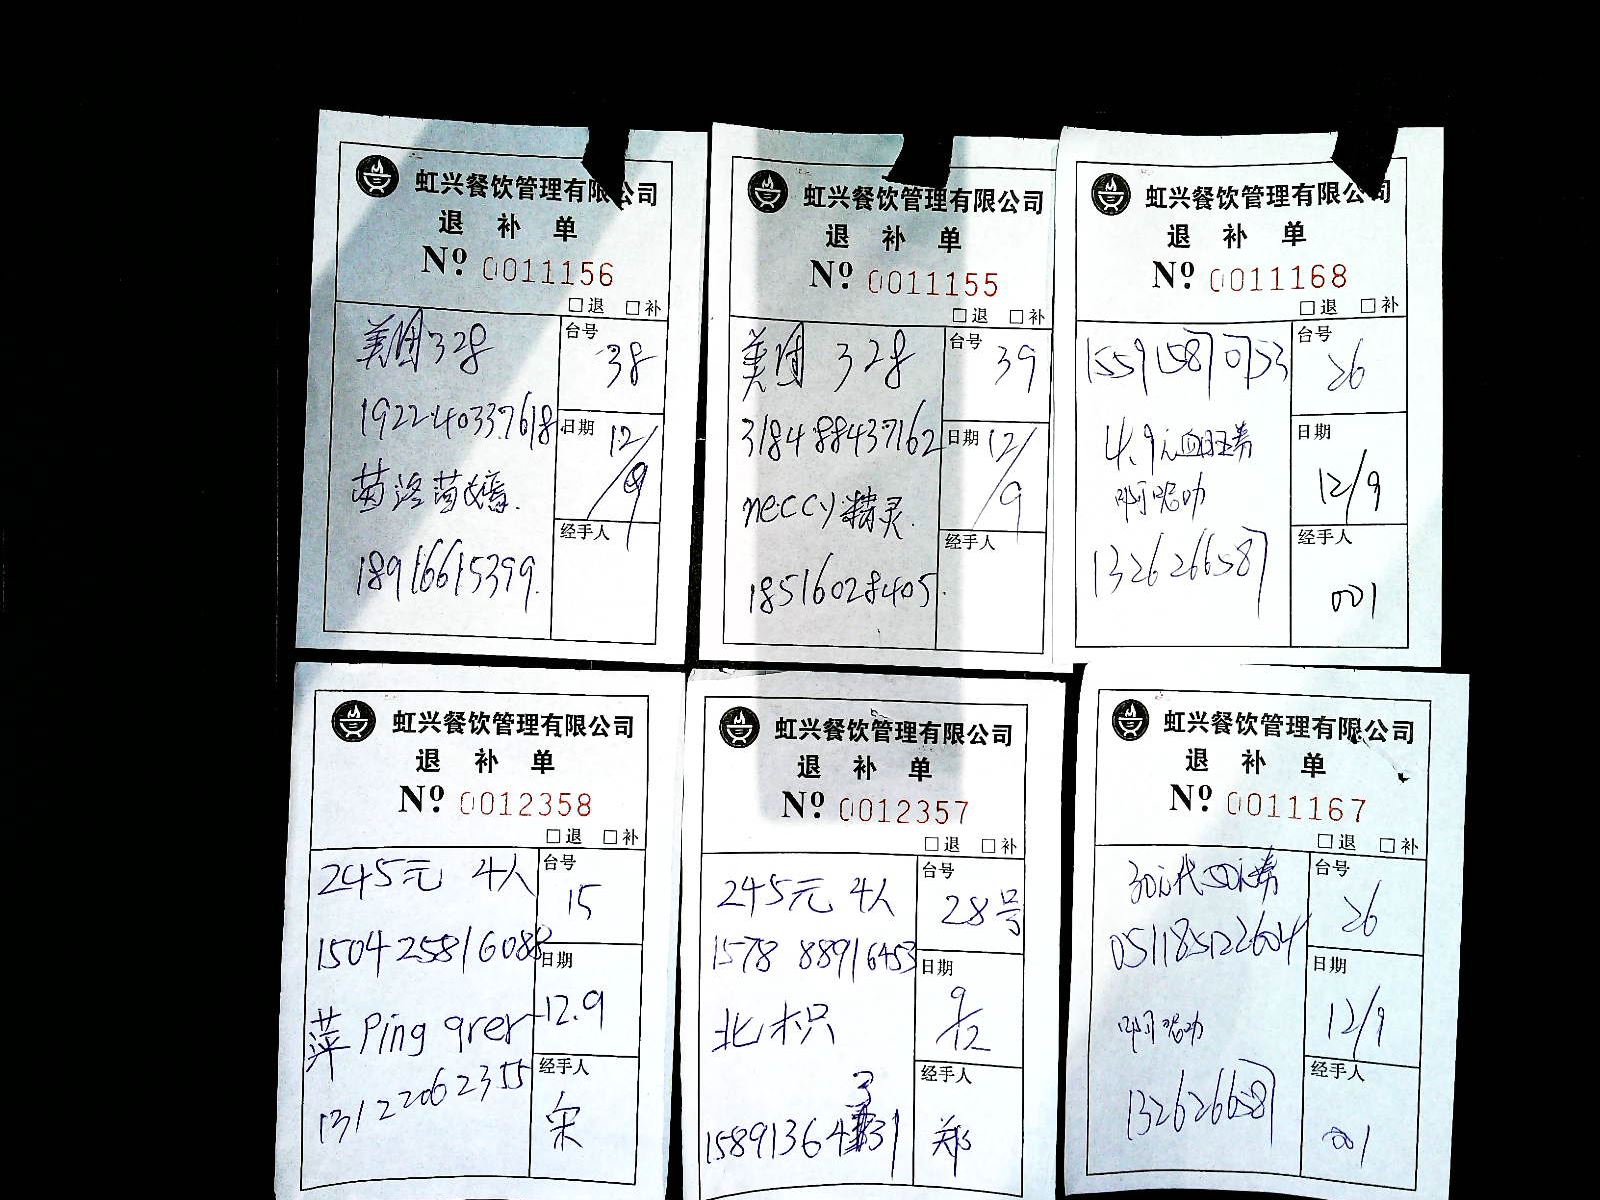 虹兴餐饮管理有限公司
退 补 单
Nº 0011156
□退 □补
美团328
台号
38
192240337618
日期
12/9
茵洛茵嫣.
经手人
18916615399.
虹兴餐饮管理有限公司
退 补 单
Nº 0011155
□退 □补
美团 328
台号
39
318488437162
日期
12/9
neccy精灵.
经手人
18516028405.
虹兴餐饮管理有限公司
退 补 单
Nº 0011168
□退 □补
台号
26
4.9元血旺券
日期
12/9
经手人
1326266587
001
虹兴餐饮管理有限公司
退 补 单
Nº 0012358
□退 □补
245元 4人
台号
15
日期
12.9
萍 Ping qrer
经手人
13122062355
宋
虹兴餐饮管理有限公司
退 补 单
Nº 0012357
□退 □补
245元 4人
台号
28号
1578 88916453
日期
9/12
北枳
经手人
郑
虹兴餐饮管理有限公司
退 补 单
Nº 0011167
□退 □补
30元代50元券
台号
26
日期
12/9
经手人
001